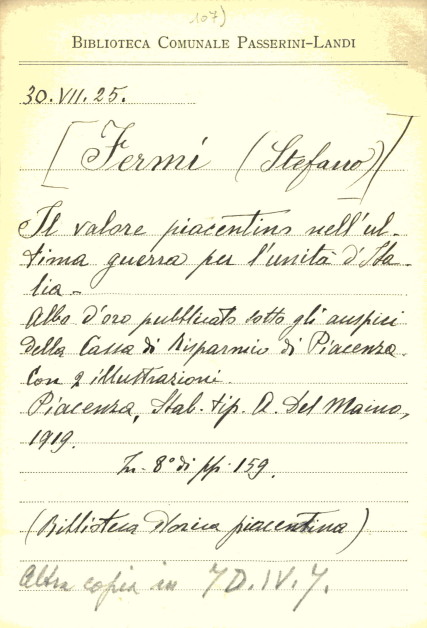 107)
BIBLIOTECA COMUNALE PASSERINI-LANDI
30.VII.25.
[Fermi (Stefano)]
Il valore piacentino nell'ul-
tima guerra per l'unità d'Ita-
lia -
Albo d'oro pubblicato sotto gli auspici
della Cassa di Risparmio di Piacenza.
Con 2 illustrazioni.
Piacenza, Stab. tip. A. Del Maino,
1919.
In-8° di pp. 159.
(Biblioteca storica piacentina)
Altra copia in 7D.IV.7.